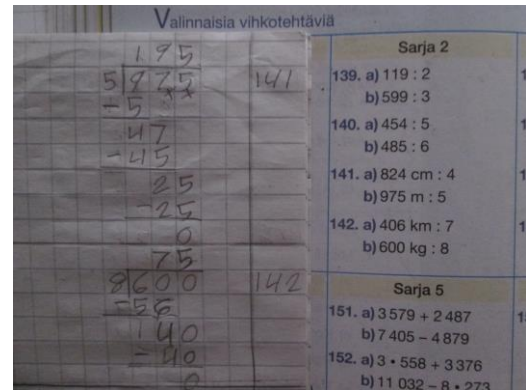 Valinnaisia vihkotehtäviä
195
5 975 141
-5
47
-45
25
-25
0
75
8 600 142
-56
40
-40
0
Sarja 2
139. a) 119 : 2
b) 599 : 3
140. a) 454 : 5
b) 485 : 6
141. a) 824 cm : 4
b) 975 m : 5
142. a) 406 km : 7
b) 600 kg : 8
Sarja 5
151. a) 3 579 + 2 487
b) 7 405 – 4 879
152. a) 3 • 558 + 3 376
b) 11 032 – 8 • 273